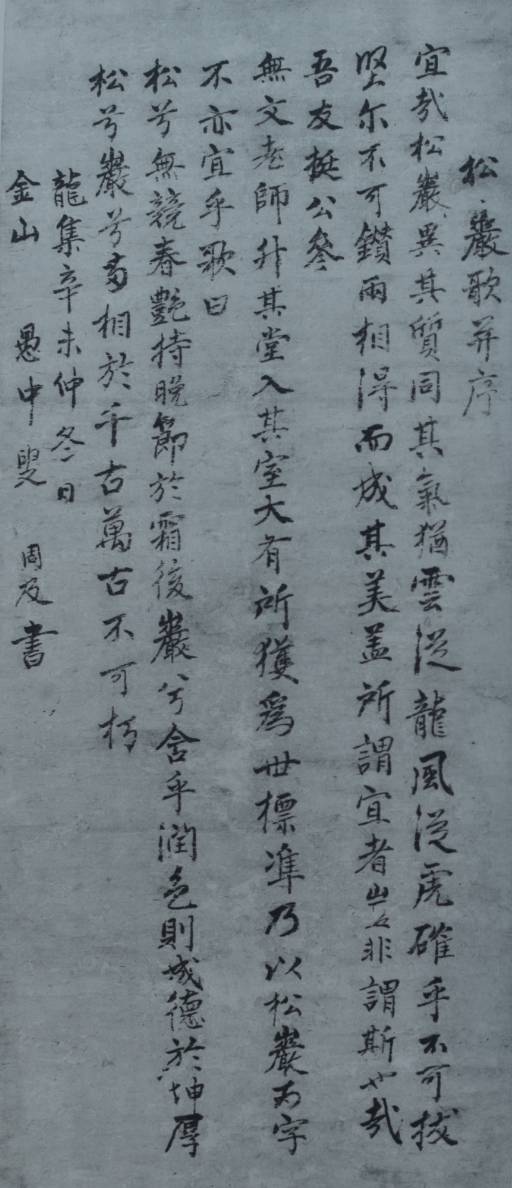 松巖歌并序
宜哉松巖異其質同其氣猶雲從龍風從虎確乎不可拔
堅尔不可鑽兩相得而成其美盖所謂宜者豈非謂斯也哉
吾友挺公參
無文老師升其堂入其室大有所獲為世標準乃以松巖為字
不亦宜乎歌曰
松兮無競春艷持晚節於霜後巖兮含乎潤色則成德於坤厚
松兮巖兮 相於千古萬古不可朽
龍集辛未仲冬日
金山 愚中叟 周及書